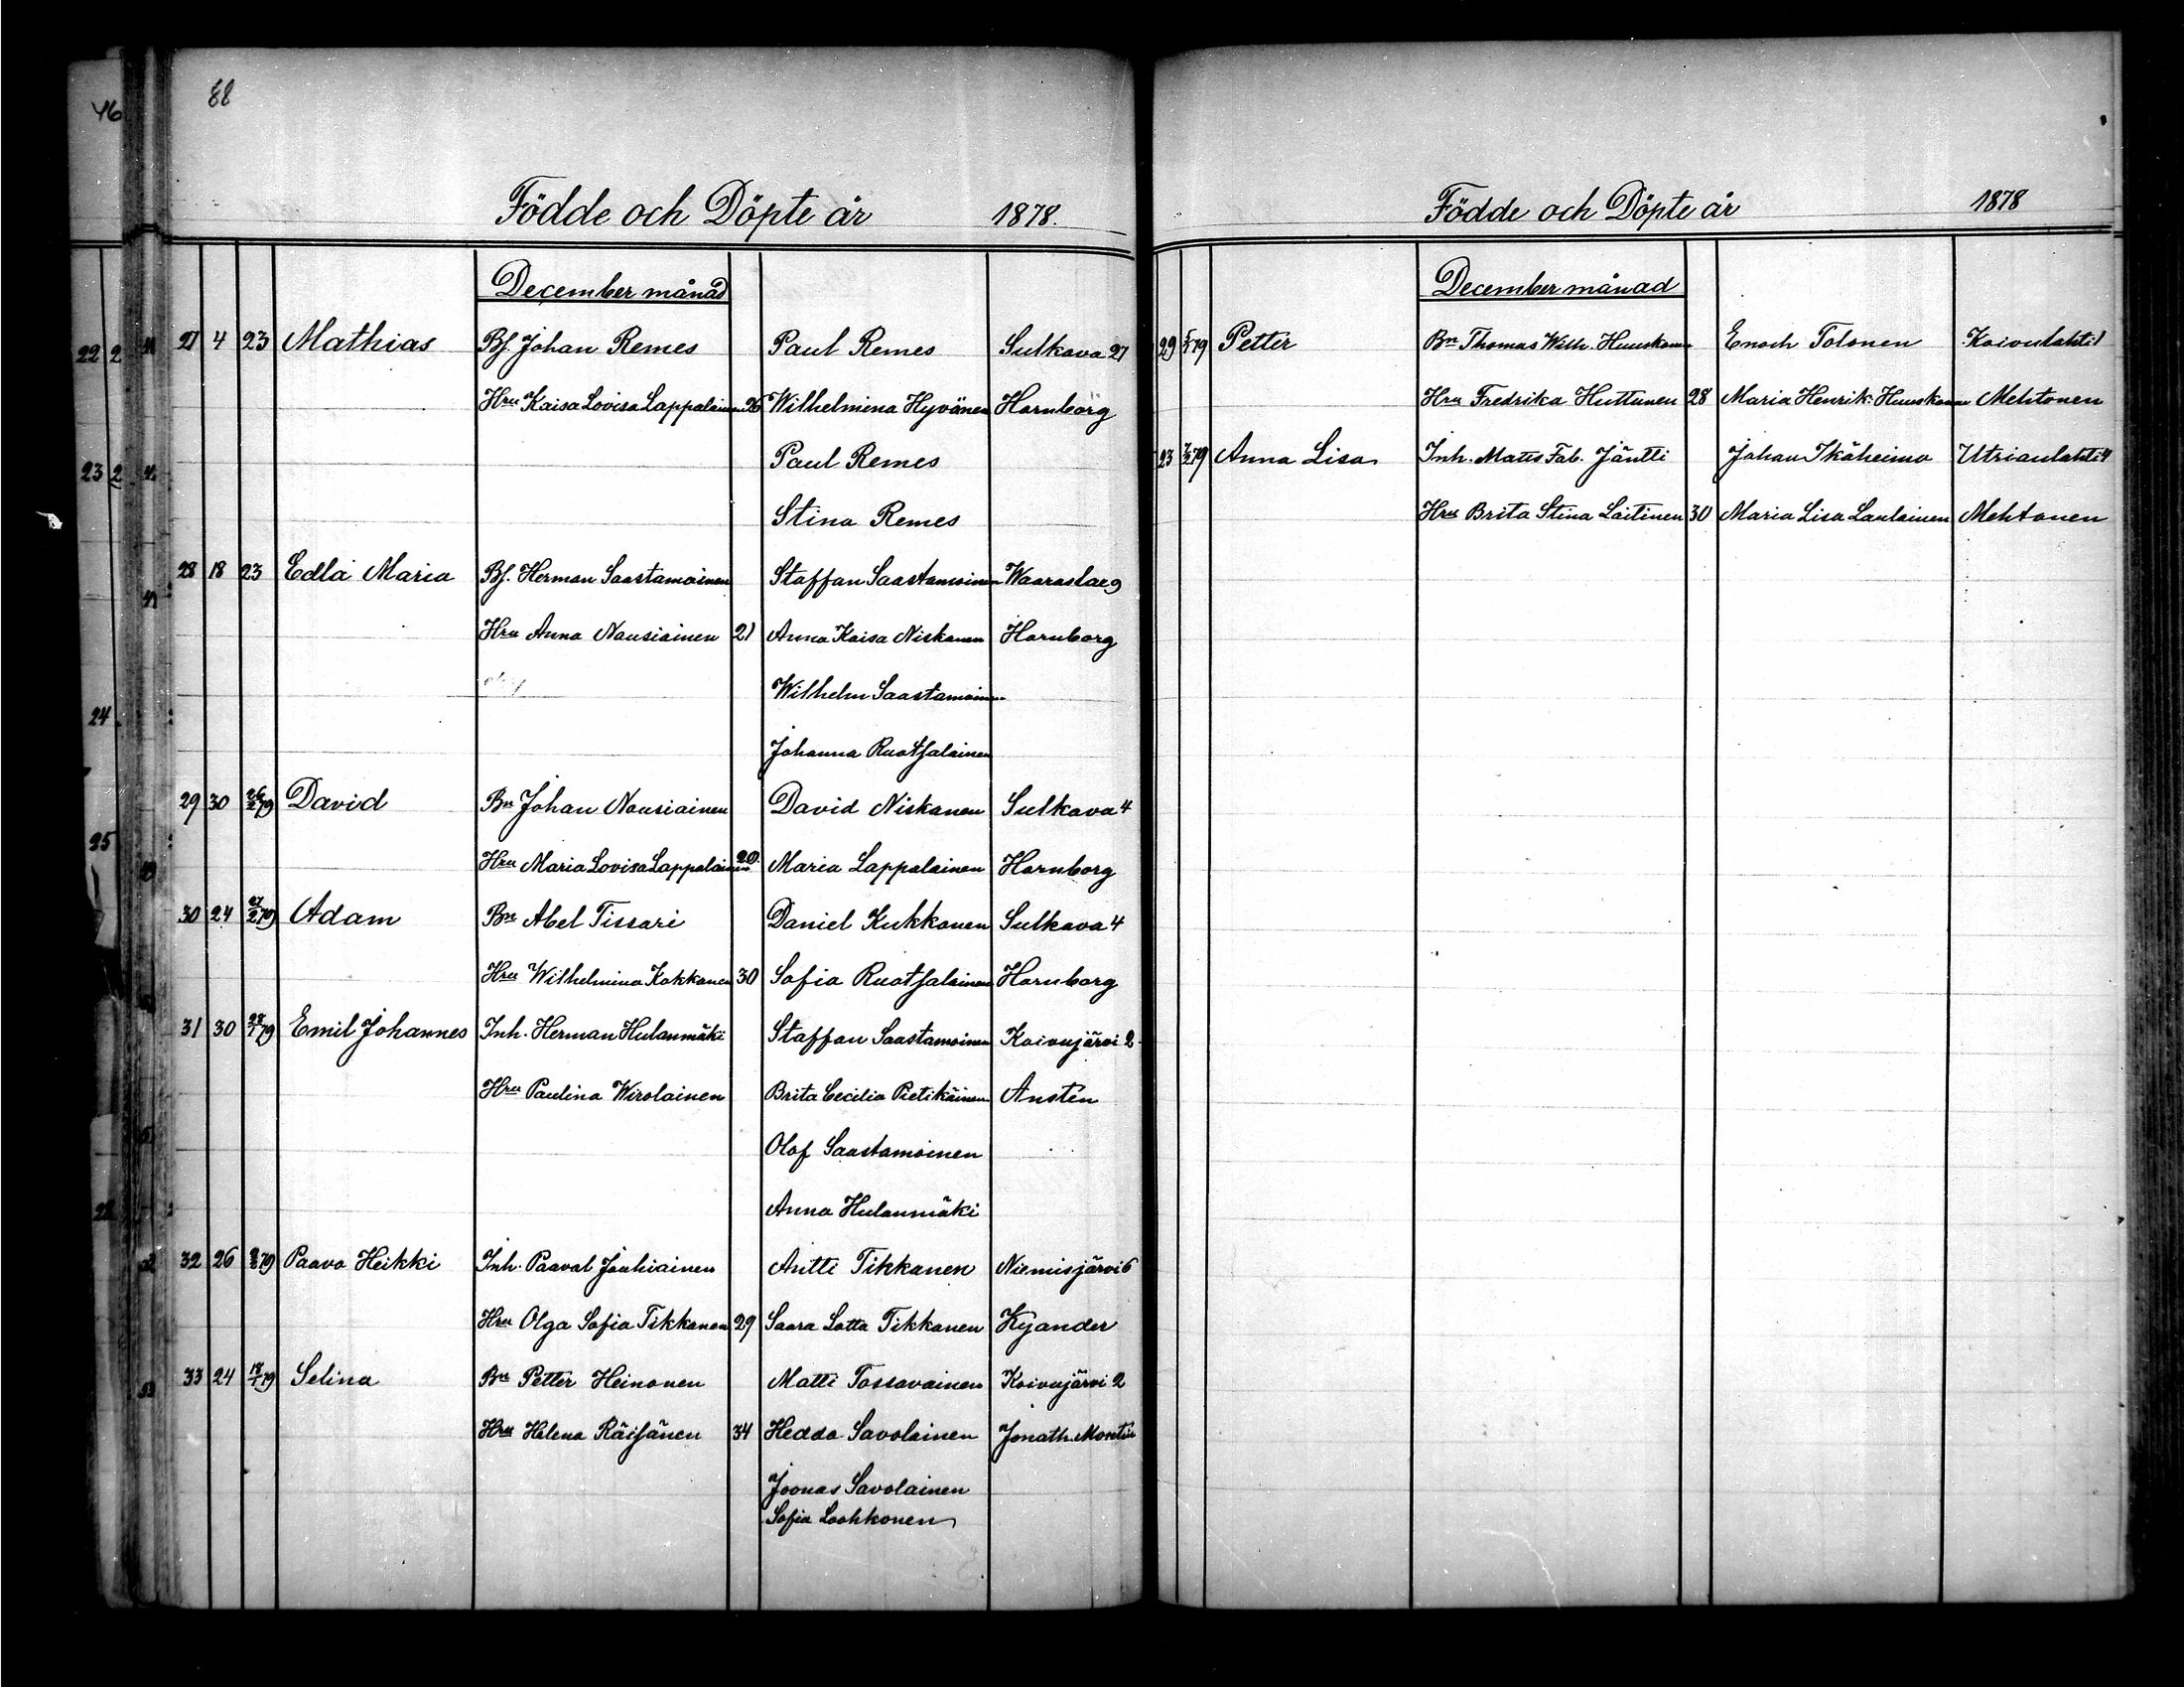 88
Födde och Döpte år 1878.
December månad
27 4 23 Mathias Bf. Johan Remes Paul Remes Sulkava 27
Hru Kaisa Lovisa Lappalainen 26 Wilhelmina Hyvönen Hornborg
Paul Remes
Stina Remes
28 18 23 Edla Maria Bf. Herman Saastamoinen Staffan Saastamoinen Waaraslax 9
Hru Anna Nousiainen 21 Anna Kaisa Niskanen Hornborg
Wilhelm Saastamoinen
Johanna Ruotsalainen
29 30 26/2 79 David Bn Johan Nousiainen David Niskanen Sulkava 4
Hru Maria Lovisa Lappalainen 20. Maria Lappalainen Hornborg
30 24 27/2 79 Adam Bn Abel Tissari Daniel Kukkonen Sulkava 4
Hru Wilhelmina Kokkonen 30 Sofia Ruotsalainen Hornborg
31 30 /1 79 Emil Johannes Inh. Herman Hulanmäki Staffan Saastamoinen Koivujärvi 2
Hru Paulina Wirolainen Brita Cecilia Pietikäinen Austén
Olof Saastamoinen
Anna Hulanmäki
32 26 79 Paavo Heikki Inh. Paaval Jauhiainen Antti Tikkanen Niemisjärvi 6
Hru Olga Sofia Tikkanen 29 Saara Lotta Tikkanen Kyander
33 24 18/1 79 Selina Bn Petter Heinonen Matti Tossavainen Koivujärvi 2
Hru Helena Räisänen 34 Hedda Savolainen Jonath. Montin
Joonas Savolainen
Sofia Loohkonen
Födde och Döpte år 1878
December månad
29 5/1 79 Petter Bn Thomas Wilh. Huuskonen Enoch Tolonen Koivulahti 1
Hru Fredrika Huttunen 28 Maria Henrik. Huuskonen Mehtonen
23 7/2 79 Anna Lisa Inh. Matts Fab. Jäntti Johan Ikäheimo Utrianlahti 4
Hru Brita Stina Laitinen 30 Maria Lisa Laulainen Mehtonen